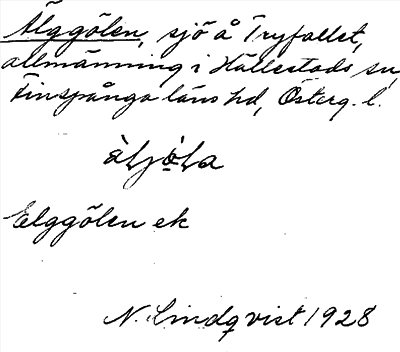 Älggölen, sjö å Tryfallet,
allmänning i Hällestads sn,
Finspånga läns hd, Österg. l.
àljö̀la
Elggölen ek
N. Lindqvist 1928